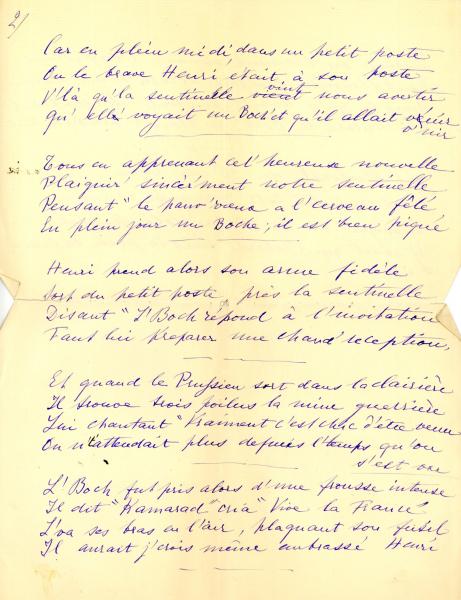 2/
Car en plein midi, dans un petit poste
Ou le brave Henri, était à son poste
V'là qu'la sentinelle vint nous avertir
Qu' elle voyait un Boch' et qu'il allait v'nir
Tous en apprenant cet' heureuse nouvelle
Plaignir' sincèrment notre sentinelle
Pensant " le pauv' vieux a l'cerveau fêlé
En plein jour un Boche, il est bien piqué
Henri prend alors son arme fidèle
Sort du petit poste, près la sentinelle
Disant " L'Boch répond à l'invitation
Faut lui préparer une chaud' réception,
Et quand le Prussien sort dans la clairière
Il trouve trois poilus la mine guerrière
Lui chantant " Vraiment c'est chic d'être venu
On n't'attendait plus depuis l'temps qu'on
s'est vu
L' Boch fut pris alors d'une frousse intense
Il dit " Kamarad" cria " Vive la France"
L'va ses bras en l'air, plaquant son fusil
Il aurait j'crois même embrassé Henri